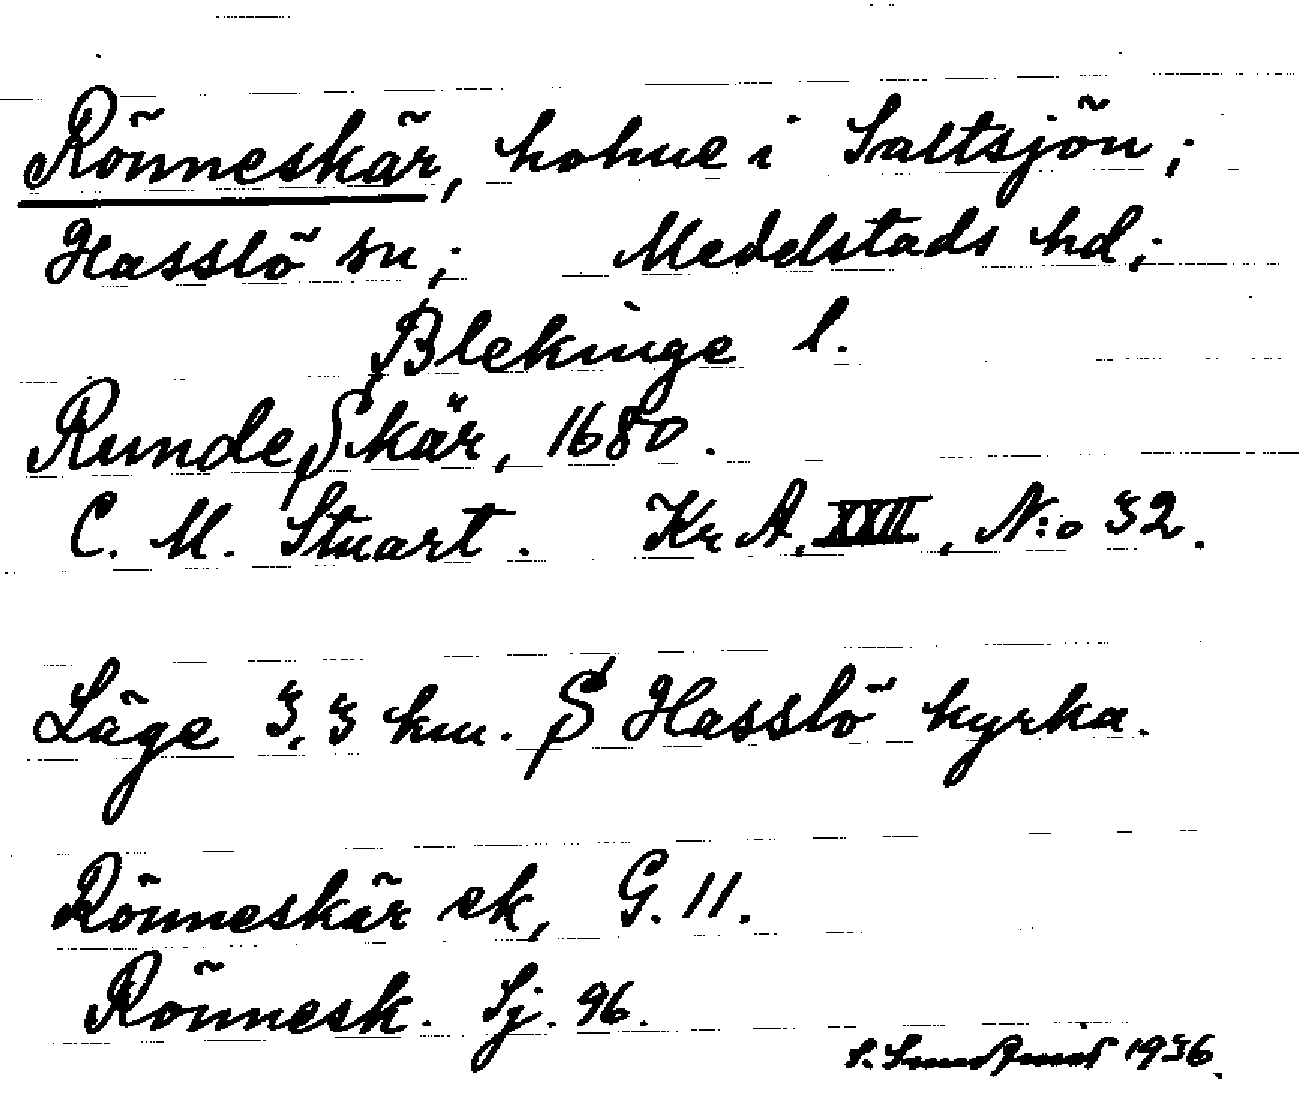 Rönneskär, holme i Saltsjön;
Hasslö sn; Medelstads hd;
Blekinge l.
Runde Skär, 1680.
C. M. Stuart. Kr A. XXII, N:o 32.
Läge 3,3 km. S Hasslö kyrka.
Rönneskär ek, G. 11.
Rönnesk. Sj. 96.
1936.